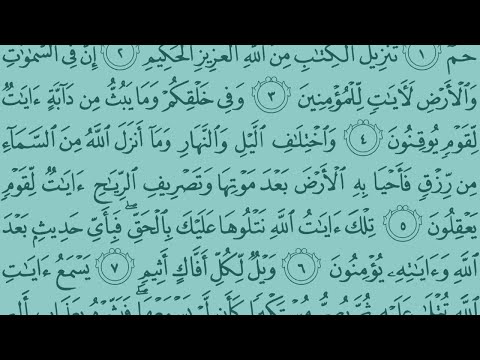 حمٓ ١ تَنزِيلُ ٱلْكِتَٰبِ مِنَ ٱللَّهِ ٱلْعَزِيزِ ٱلْحَكِيمِ ٢ إِنَّ فِى ٱلسَّمَٰوَٰتِ
وَٱلْأَرْضِ لَءَايَٰتٍ لِّلْمُؤْمِنِينَ ٣ وَفِى خَلْقِكُمْ وَمَا يَبُثُّ مِن دَآبَّةٍ ءَايَٰتٌ
لِّقَوْمٍ يُوقِنُونَ ٤ وَٱخْتِلَٰفِ ٱلَّيْلِ وَٱلنَّهَارِ وَمَآ أَنزَلَ ٱللَّهُ مِنَ ٱلسَّمَآءِ
مِن رِّزْقٍ فَأَحْيَا بِهِ ٱلْأَرْضَ بَعْدَ مَوْتِهَا وَتَصْرِيفِ ٱلرِّيَٰحِ ءَايَٰتٌ لِّقَوْمٍ
يَعْقِلُونَ ٥ تِلْكَ ءَايَٰتُ ٱللَّهِ نَتْلُوهَا عَلَيْكَ بِٱلْحَقِّ ۖ فَبِأَىِّ حَدِيثٍۭ بَعْدَ
ٱللَّهِ وَءَايَٰتِهِۦ يُؤْمِنُونَ ٦ وَيْلٌ لِّكُلِّ أَفَّاكٍ أَثِيمٍ ٧ يَسْمَعُ ءَايَٰتِ
ٱللَّهِ تُتْلَىٰ عَلَيْهِ ثُمَّ يُصِرُّ مُسْتَكْبِرًا كَأَن لَّمْ يَسْمَعْهَا ۖ فَبَشِّرْهُ بِعَذَابٍ أَلِيمٍ